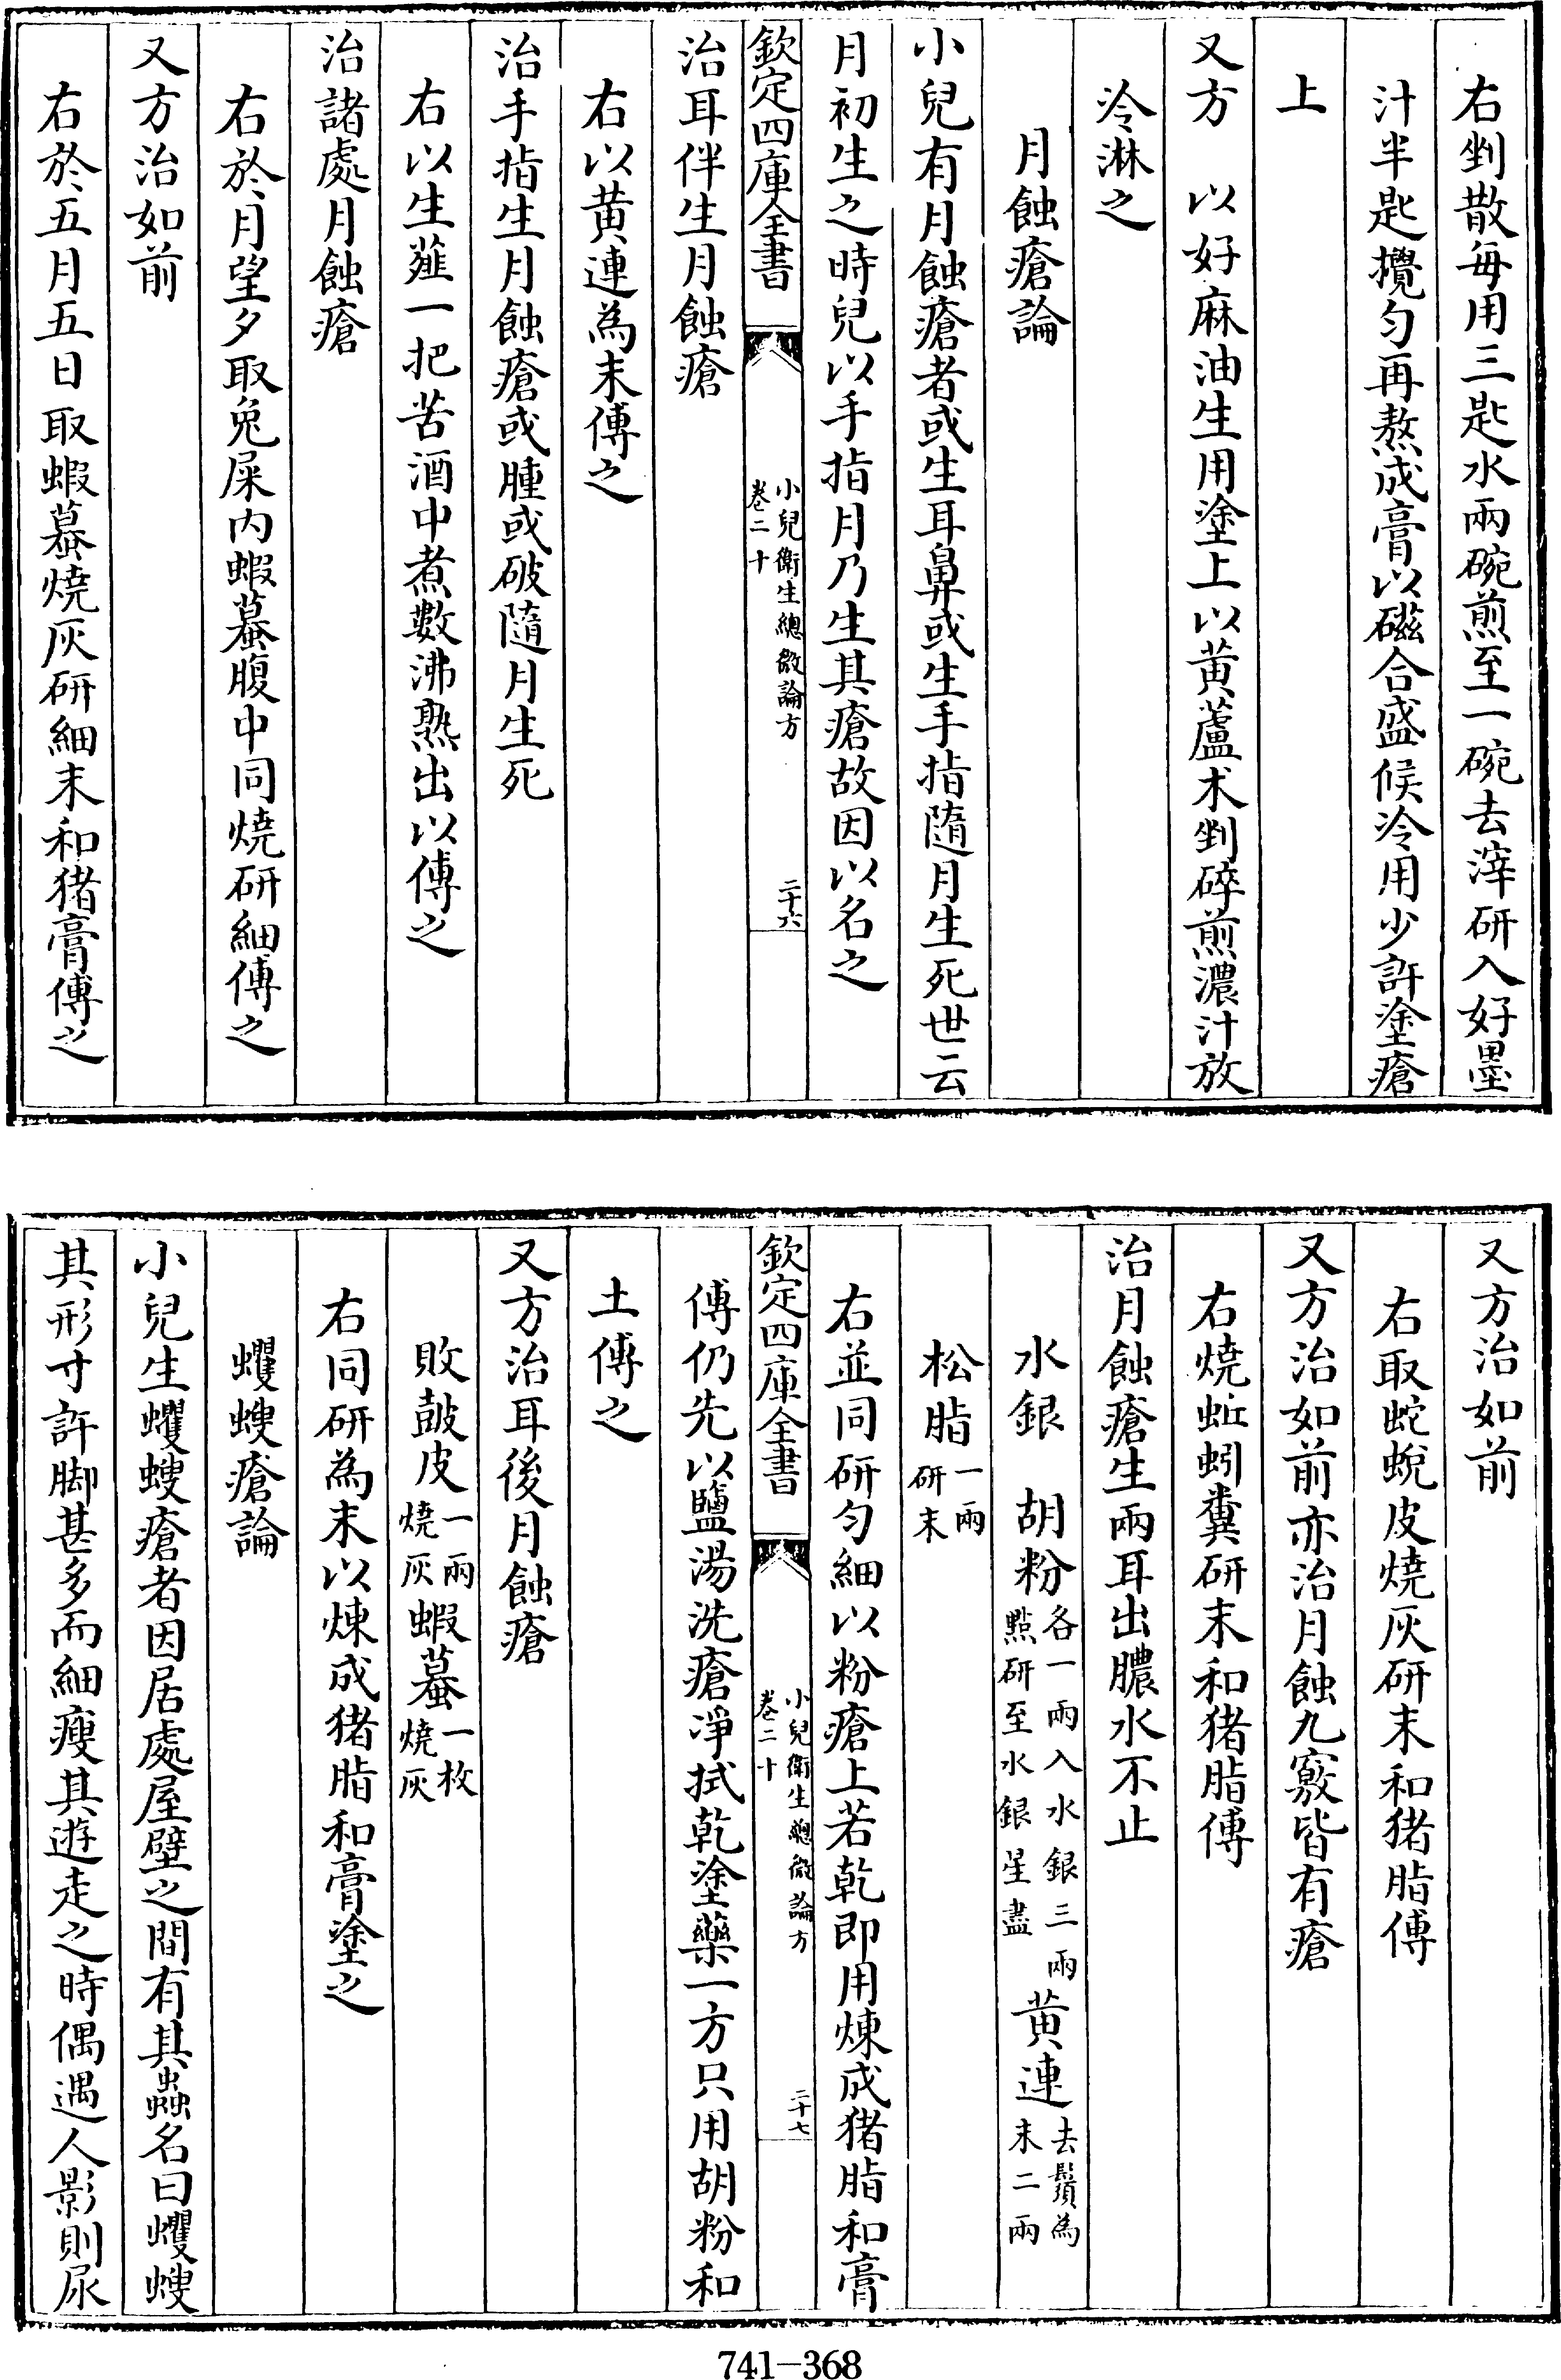 右剉散每用三匙水兩碗煎至一碗去滓研入好墨
汁半匙攪勻再熬成膏以磁合盛候冷用少許塗瘡
上
又方　以好麻油生用塗上以黃蘆朮剉碎煎濃汁放
冷淋之
月蝕瘡論
小兒有月蝕瘡者或生耳鼻或生手指隨月生死世云
月初生之時兒以手指月乃生其瘡故因以名之
欽定四庫全書　小兒衛生總微論方　卷二十　二十六
治耳伴生月蝕瘡
右以黃連為末傅之
治手指生月蝕瘡或腫或破隨月生死
右以生薤一把苦酒中煮數沸熟出以傅之
治諸處月蝕瘡
右於月望夕取兔屎內蝦蟇腹中同燒研細傅之
又方治如前
右於五月五日取蝦蟇燒灰研細末和猪膏傅之
又方治如前
右取蛇蛻皮燒灰研末和猪脂傅
又方治如前亦治月蝕九竅皆有瘡
右燒蚯蚓糞研末和猪脂傅
治月蝕瘡生兩耳出膿水不止
水銀　胡粉各一兩入水銀三兩點研至水銀星盡　黃連去鬚為末二兩
松脂一兩研末
右並同研勻細以粉瘡上若乾即用煉成猪脂和膏
欽定四庫全書　小兒衛生總微論方　卷二十　二十七
傅仍先以鹽湯洗瘡凈拭乾塗藥一方只用胡粉和
土傅之
又方治耳後月蝕瘡
敗鼓皮一兩燒灰　蝦蟇一枚燒灰
右同研為末以煉成猪脂和膏塗之
蠼螋瘡論
小兒生蠼螋瘡者因居處屋壁之間有其蟲名曰蠼螋
其形寸許脚甚多而細瘦其遊走之時偶遇人影則尿
741-368